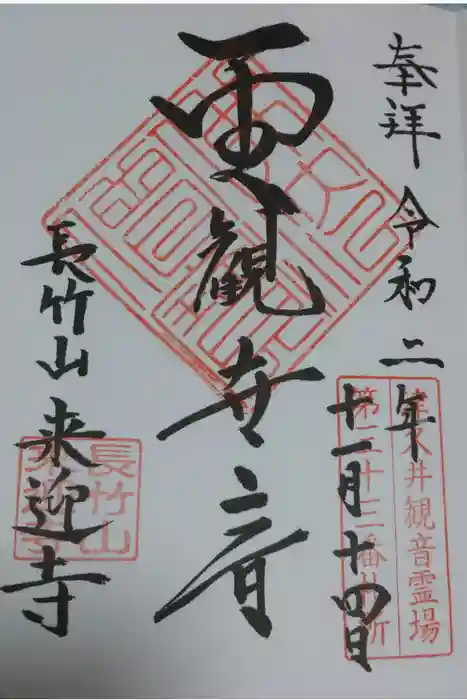 奉拝 令和二年
十一月十四日
津久井観音霊場
第二十三番札所
観世音
長竹山 来迎寺
長竹山
来迎寺